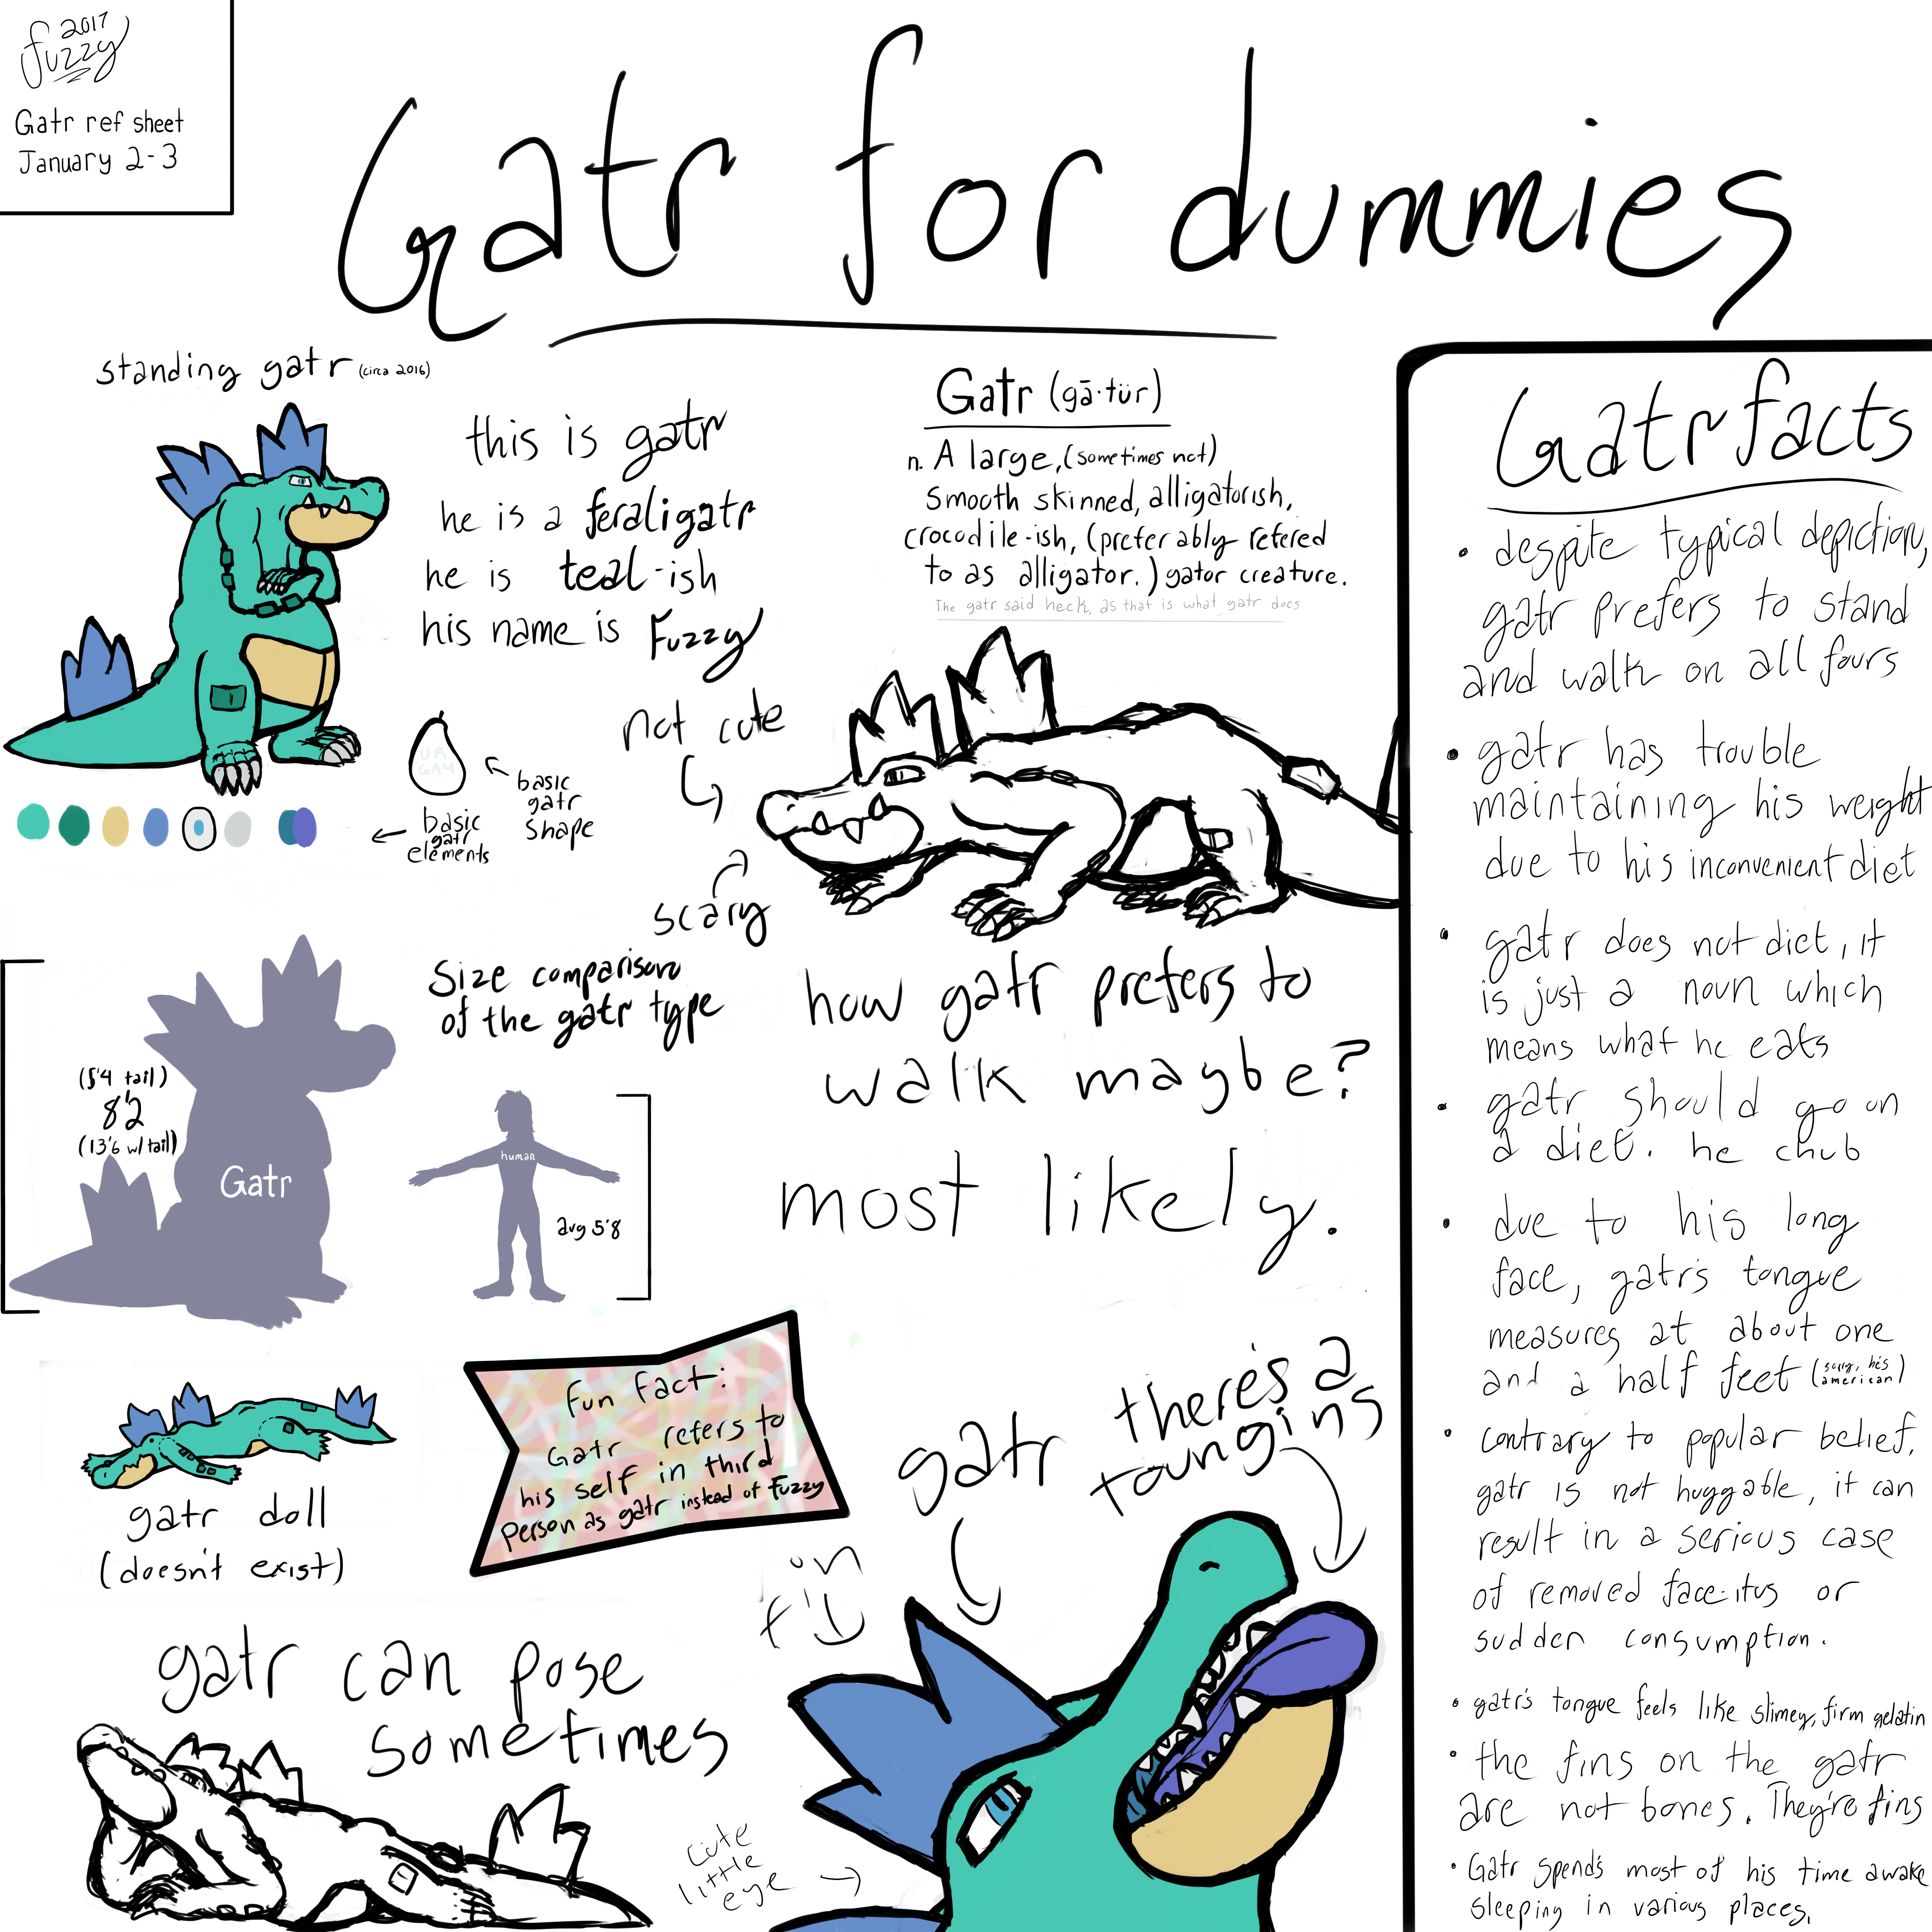 2017
fuzzy
Gatr ref sheet
January 2-3
Gatr for dummies
standing gatr (circa 2016)
this is gatr
he is a feraligatr
he is teal-ish
his name is Fuzzy
UR
GAY
basic
gatr
shape
basic
gatr
elements
Gatr (gā·tür)
n. A large, (sometimes not)
smooth skinned, alligatorish,
crocodile-ish, (preferably refered
to as alligator.) gator creature.
The gatr said heck, as that is what gatr does
not cute
scary
how gatr prefers to
walk maybe?
most likely.
Size comparison
of the gatr type
(5'4 tail)
8'2
(13'6 w/ tail)
Gatr
human
avg 5'8
gatr doll
(doesn't exist)
Fun Fact:
Gatr refers to
his self in third
person as gatr instead of Fuzzy
gatr can pose
sometimes
gatr
there's a
toungins
cute
little
eye
Gatr facts
• despite typical depiction,
gatr prefers to stand
and walk on all fours
• gatr has trouble
maintaining his weight
due to his inconvenient diet
• gatr does not diet, it
is just a noun which
means what he eats
• gatr should go on
a diet. he chub
• due to his long
face, gatr's tongue
measures at about one
and a half feet (sorry, he's american)
• contrary to popular belief,
gatr is not huggable, it can
result in a serious case
of removed face-itus or
sudden consumption.
• gatr's tongue feels like slimey, firm gelatin
• the fins on the gatr
are not bones. They're fins
• Gatr spend's most of his time awake
sleeping in various places.